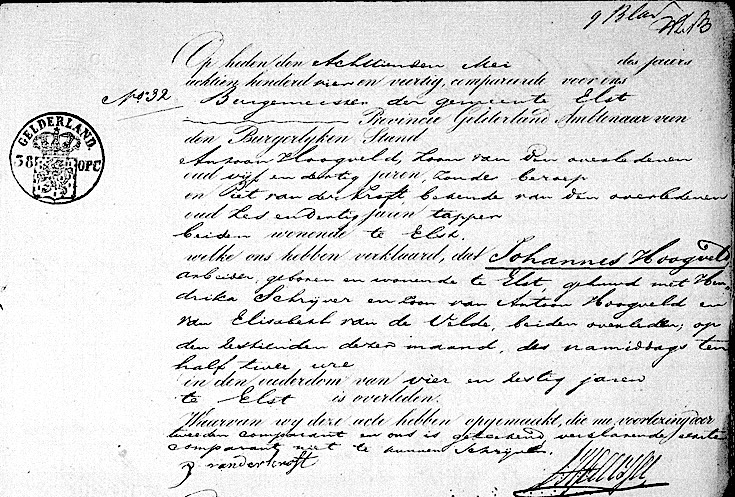 9 Blad
Op heden den Achttienden Mei des jaars
achtien honderd vier en veertig, compareerde voor ons
No: 32 Burgemeester der gemeente Elst
Provincie Gelderland Ambtenaar van
den Burgerlyken Stand
GELDERLAND.
38 OPC
Antoon Hoogveld, zoon van den overledenen
oud vijf en dertig jaren, zonder beroep
en Piet van der Kroft, bekende van den overledenen
oud zes en dertig jaren tapper
beiden wonende te Elst.
welke ons hebben verklaard, dat Johannes Hoogveld
arbeider, geboren en wonende te Elst, gehuwd met Hen
drika Schrijver en zoon van Antoon Hoogveld en
van Elisabeth van de Velde, beiden overleden; op
den zestienden dezer maand, des namiddags ten
half twee ure
in den ouderdom van vier en zestig jaren
te Elst is overleden.
Waarvan wy deze acte hebben opgemaakt, die na voorlezing door
tweeden comparant en ons is geteekend, verklarende eerste
comparant niet te kunnen schrijven.
P vanderkroft